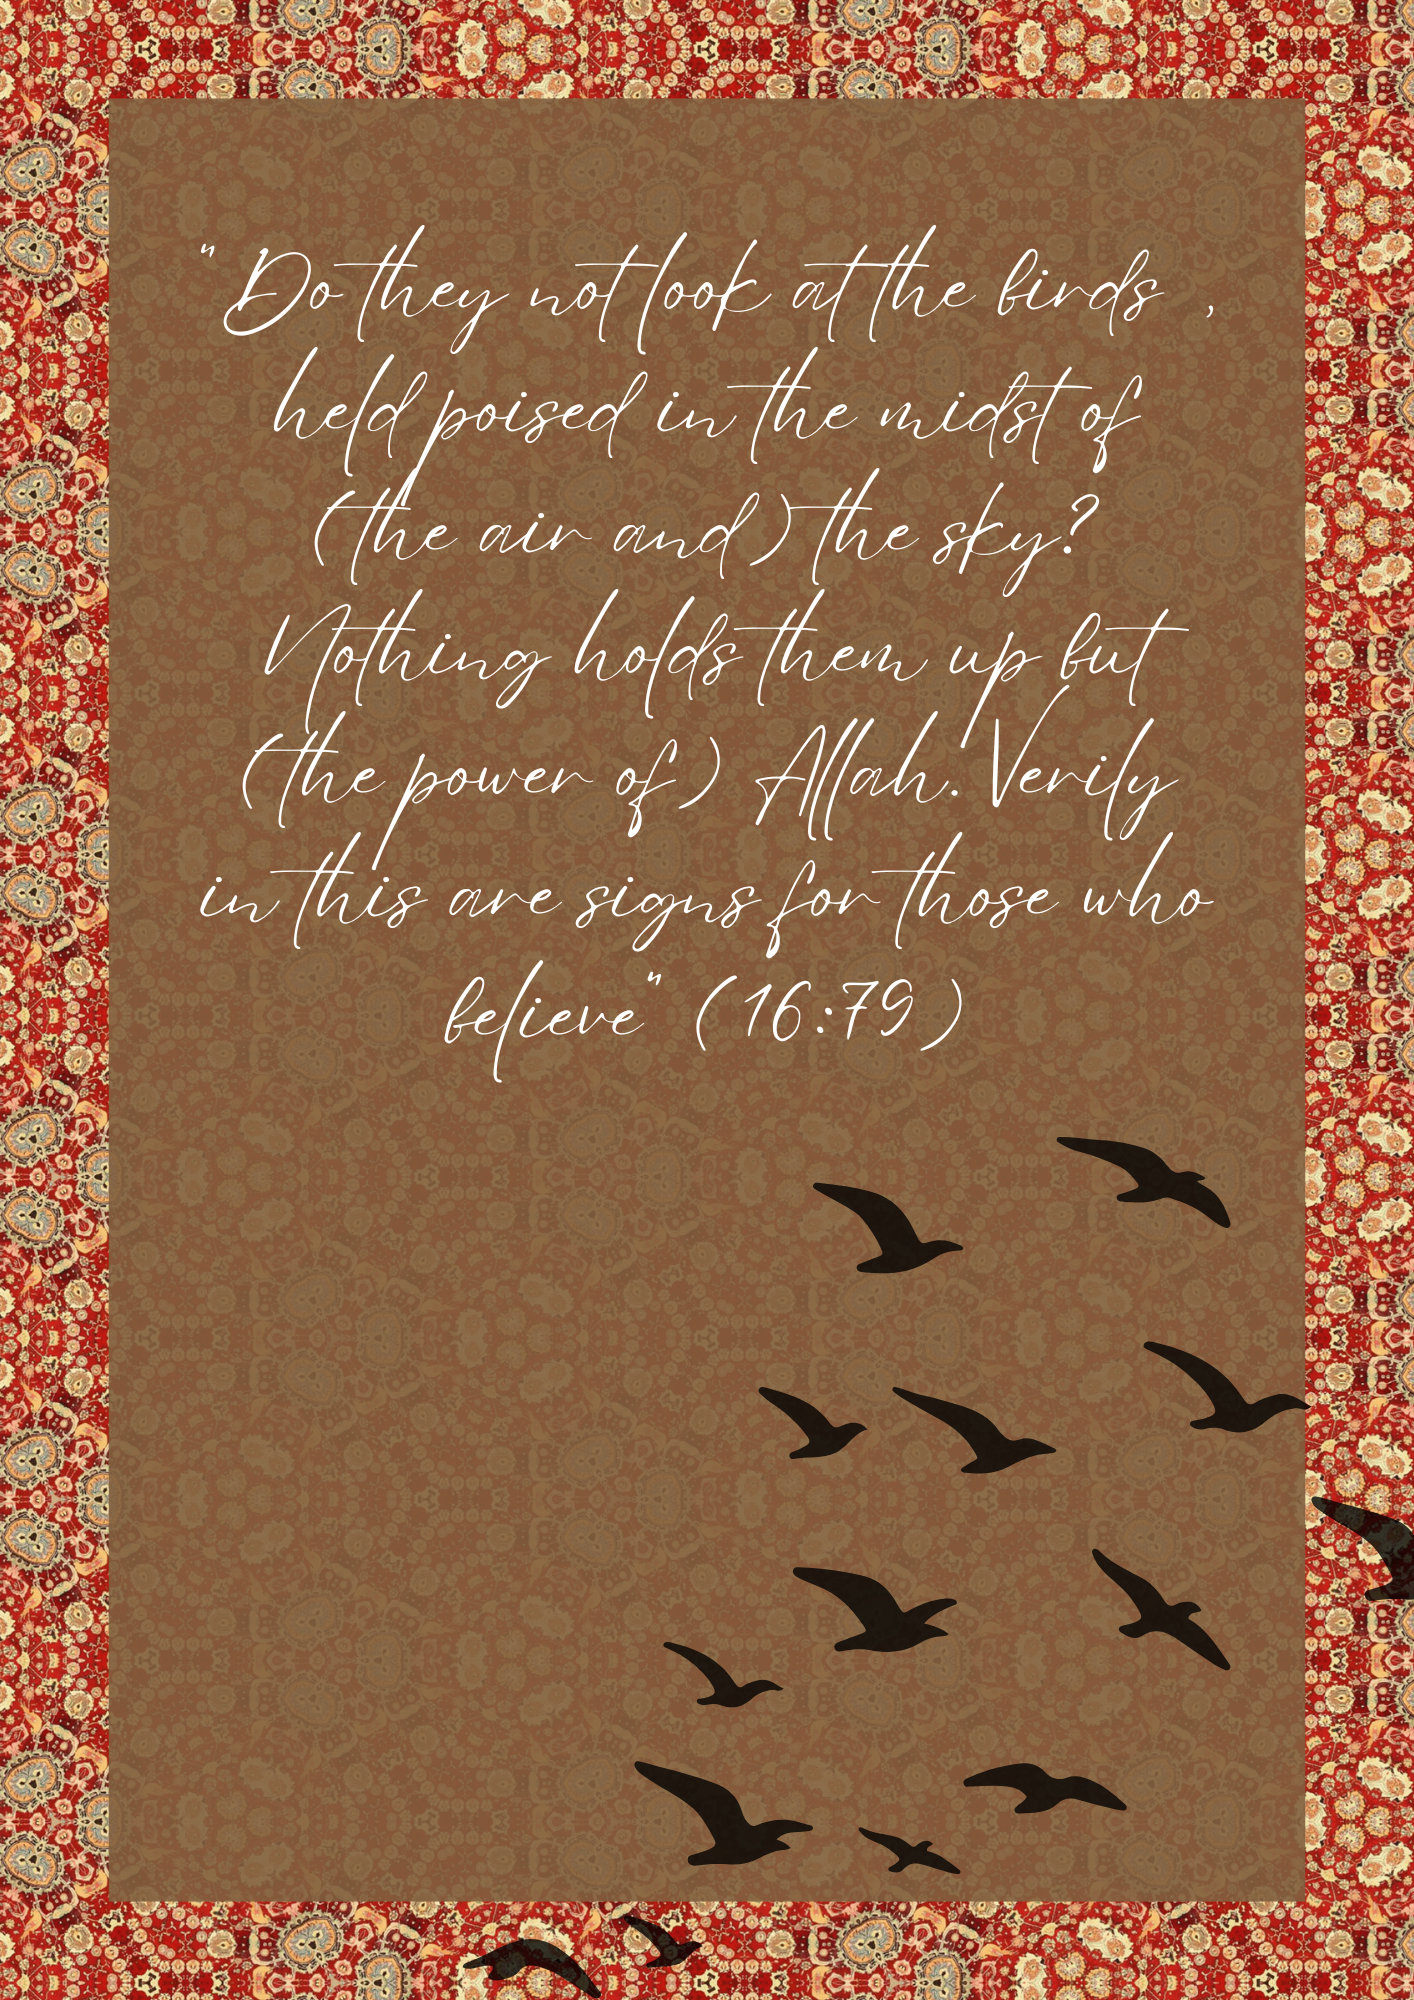 "Do they not look at the birds ,
held poised in the midst of
(the air and) the sky?
Nothing holds them up but
(the power of) Allah. Verily
in this are signs for those who
believe" (16:79)